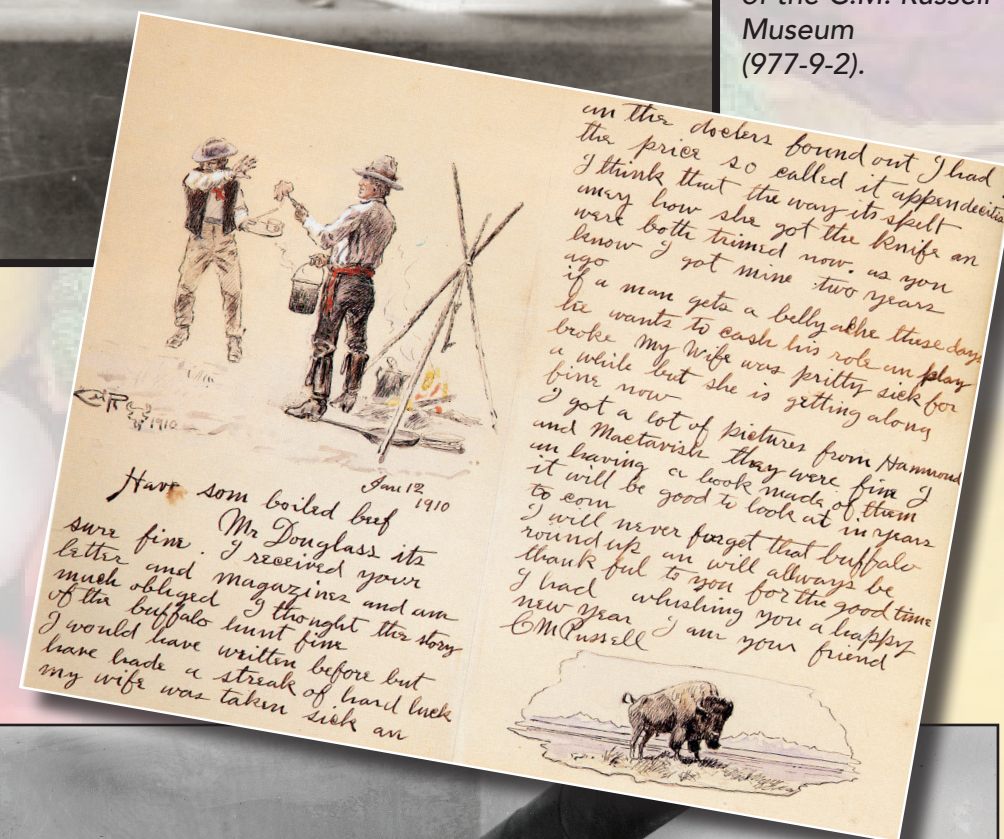 of the C.M. Russell
Museum
(977-9-2).
Jan 12
1910
Have som boiled beef
Mr Douglass its
sure fine. I received your
letter and magazines and am
much obliged I thought the story
of the buffalo hunt fine
I would have written before but
have hade a streak of hard luck
my wife was taken sick an
an the docters found out I had
the price so called it appendecitis
I think that the way its spelt
aney how she got the knife an
were both trimed now. as you
know I got mine two years
ago
if a man gets a bellyache these days
he wants to cash his role an play
broke My Wife was pritty sick for
a while but she is getting along
fine now
I got a lot of pictures from Hammond
and Mactavish they were fine I
am having a book made of them
it will be good to look at in years
to com
I will never forget that buffalo
roundup an will allways be
thankful to you for the good time
I had whishing you a happy
new year I am your friend
CM Russell
1910